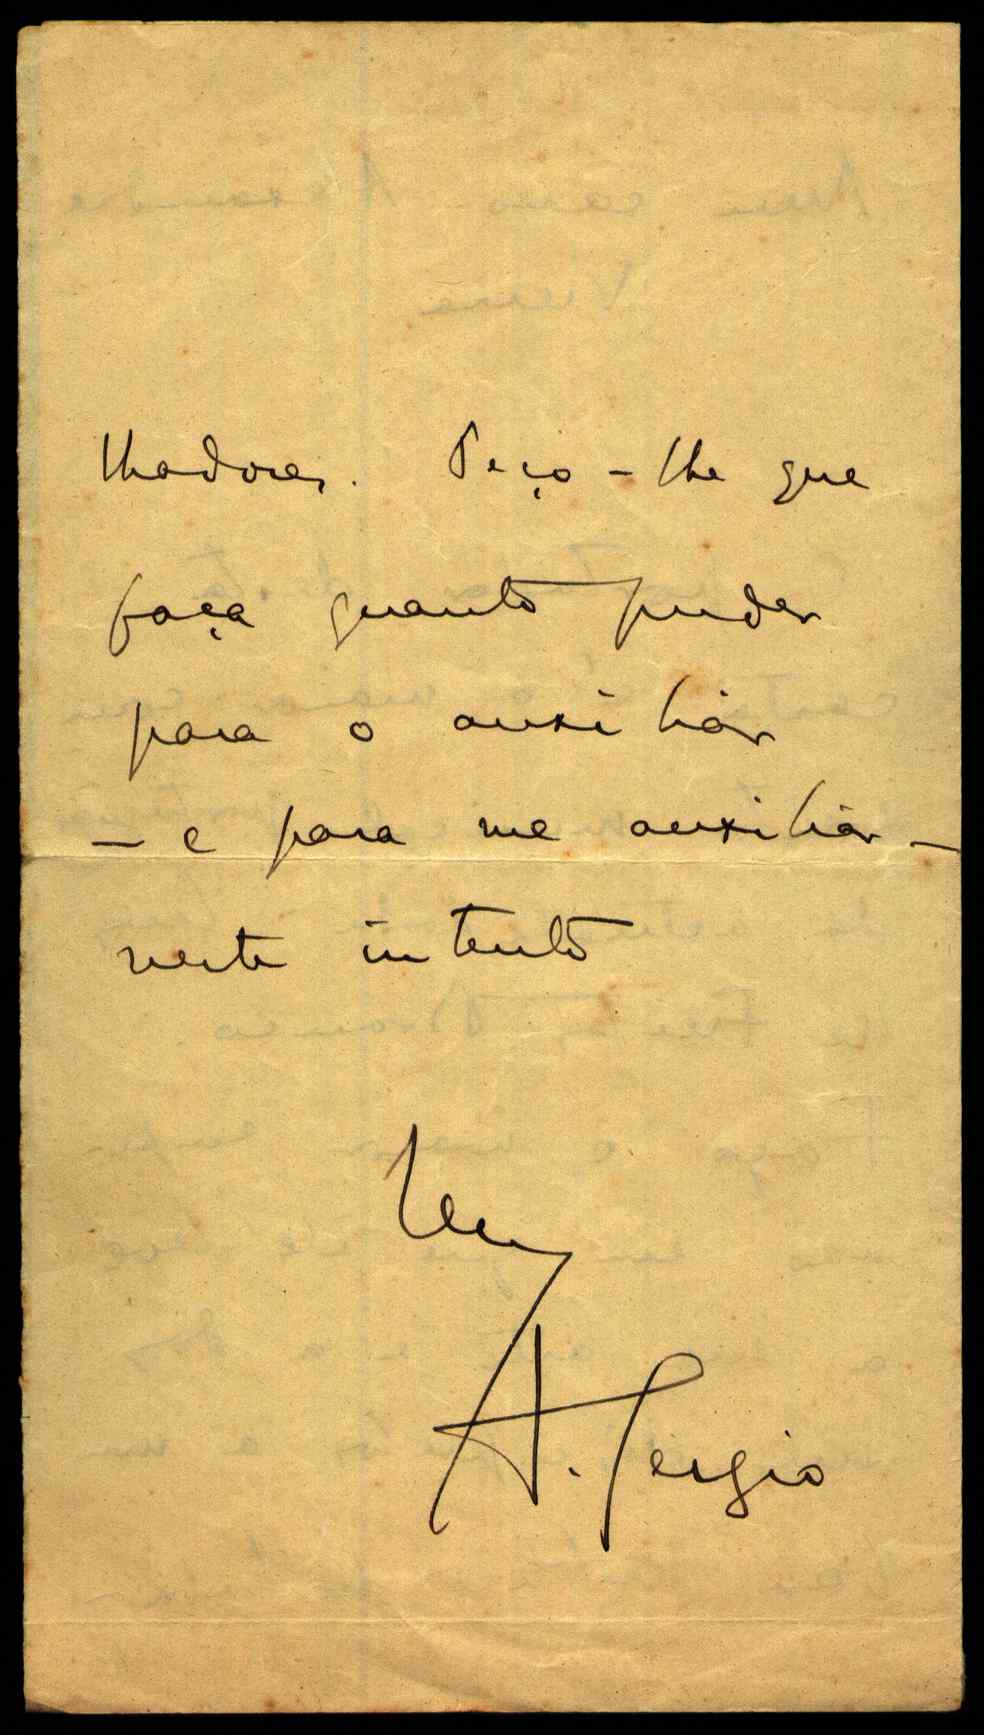 lhadores. Peço-lhe que
faça quanto puder
para o auxiliar
– e para me auxiliar –
neste intento
A. Sergio